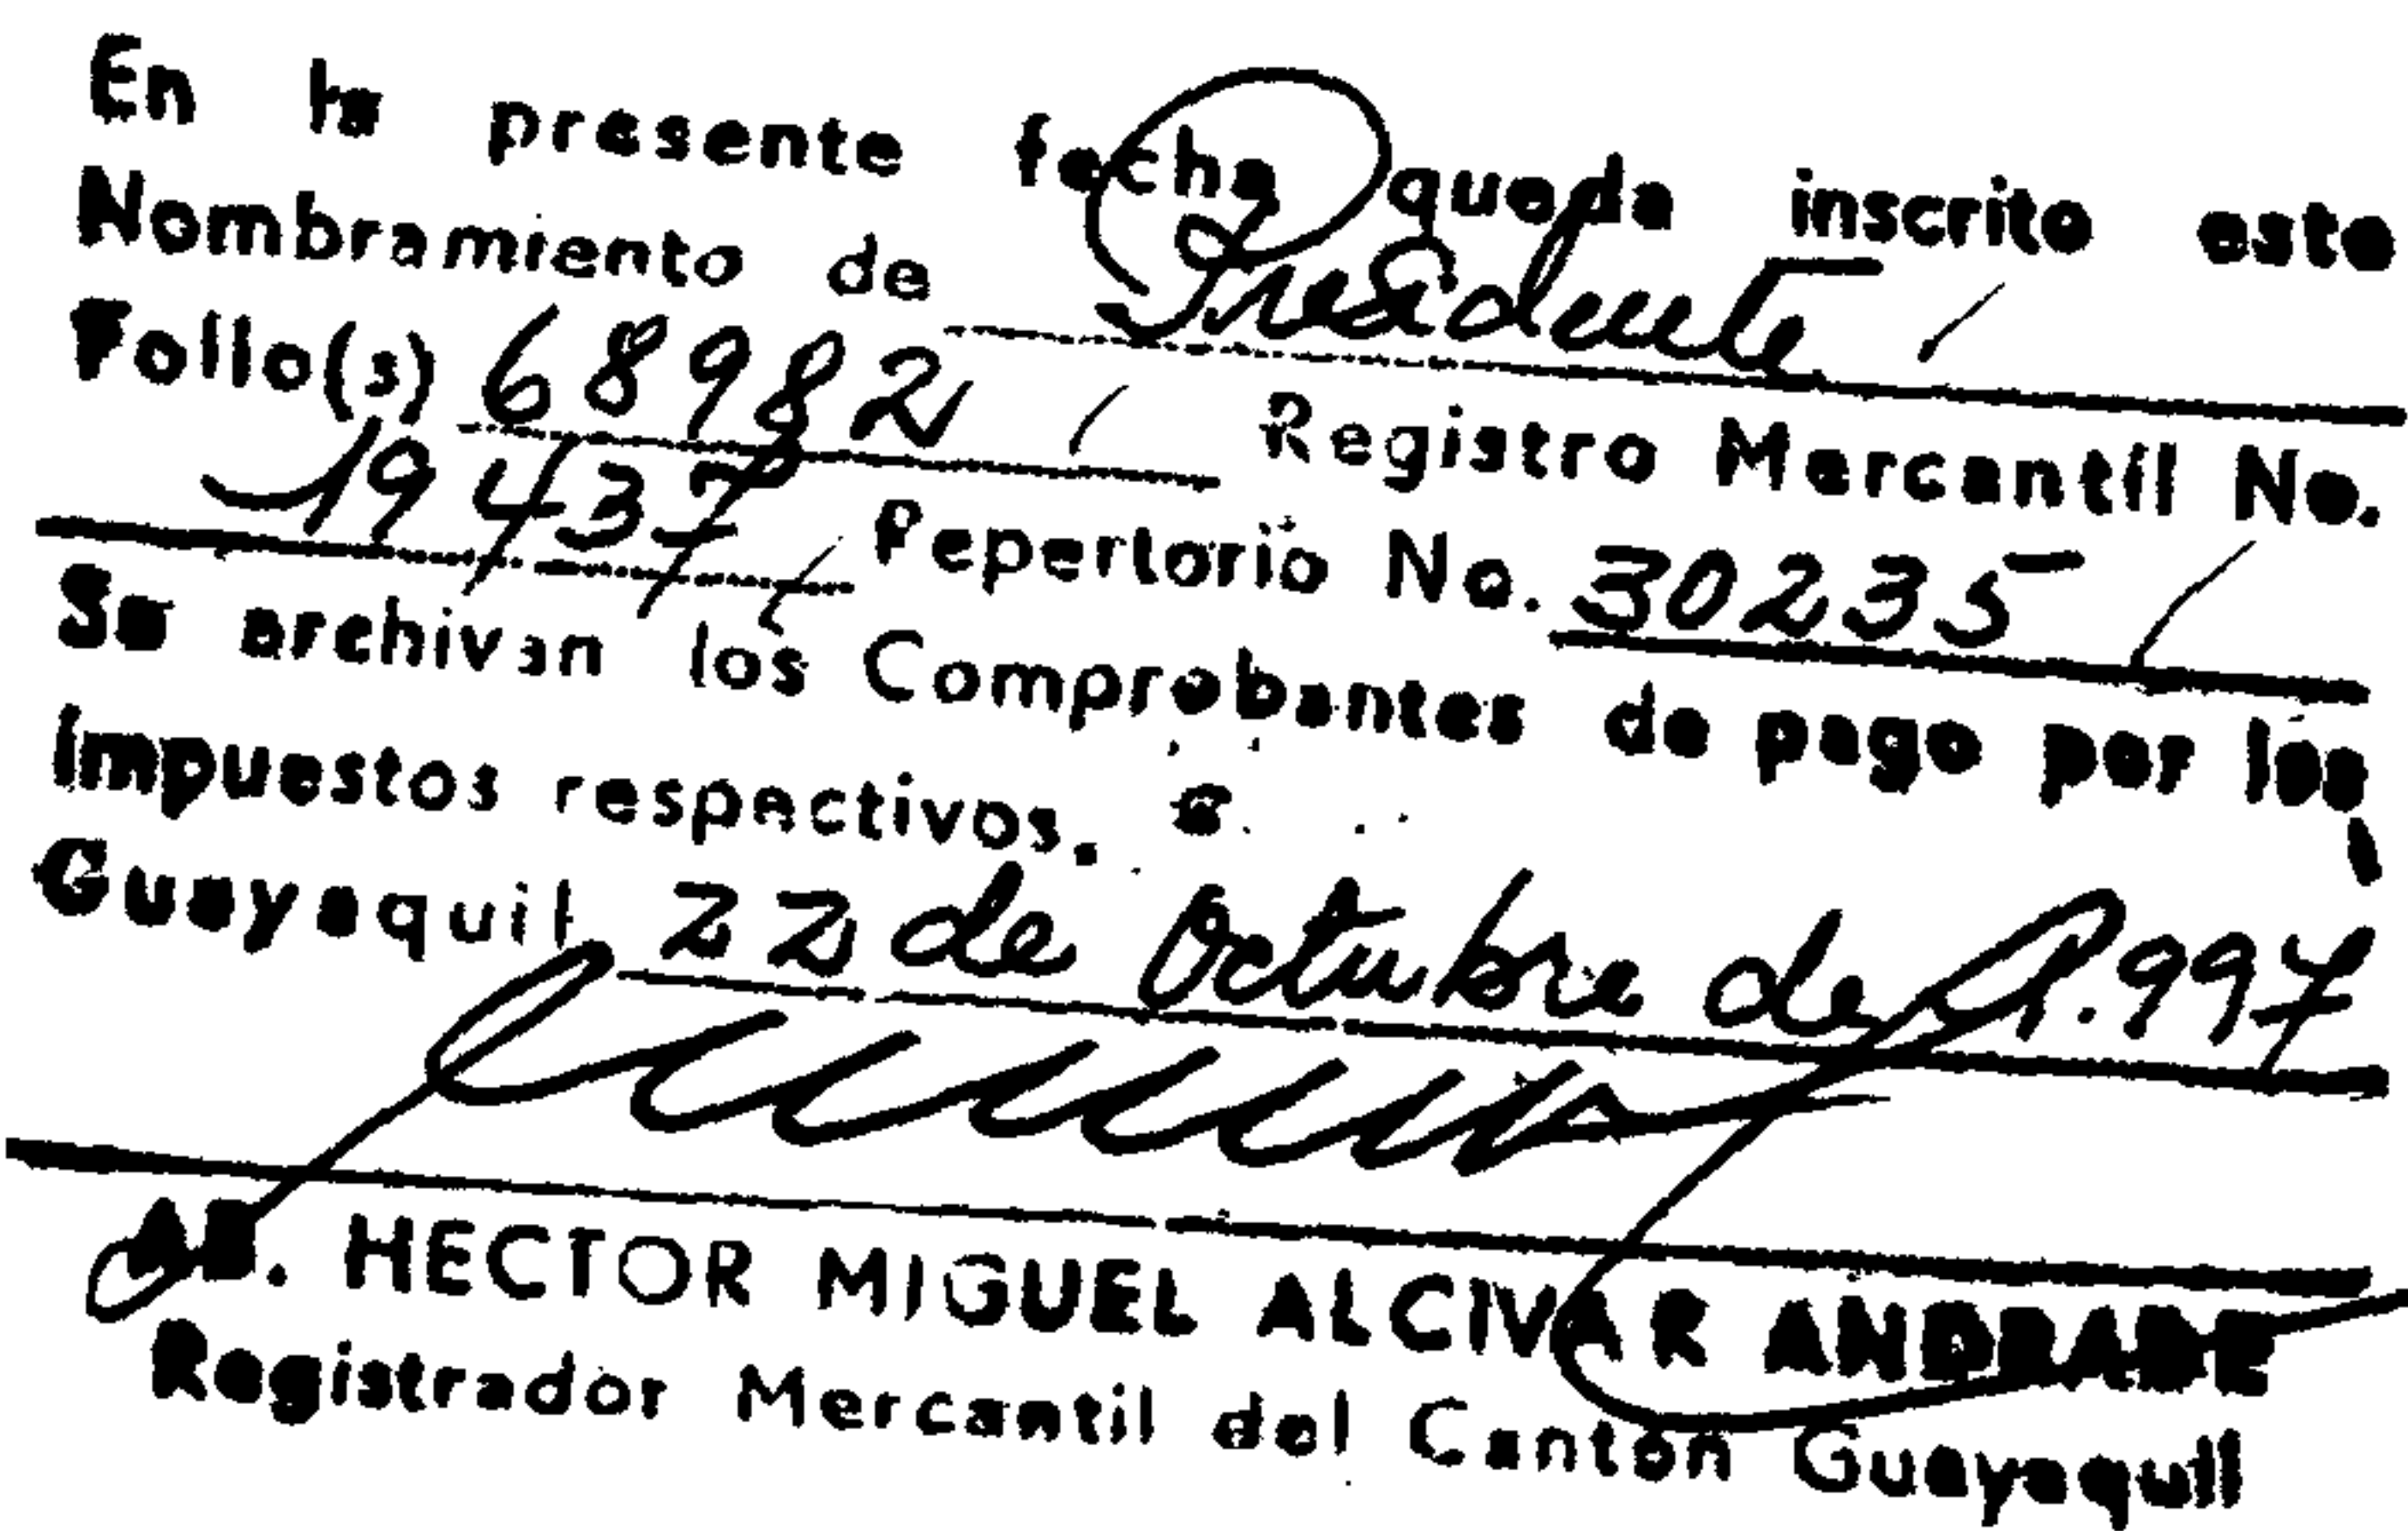 En la presente fecha queda inscrito este
Nombramiento de Presidente
Folio(s) 68982 Registro Mercantil No.
19437 Repertorio No. 30235
Se archivan los Comprobantes de pago por los
Impuestos respectivos.
Guayaquil 22 de Octubre de 1.997
AB. HECTOR MIGUEL ALCIVAR ANDRADE
Registrador Mercantil del Cantón Guayaquil